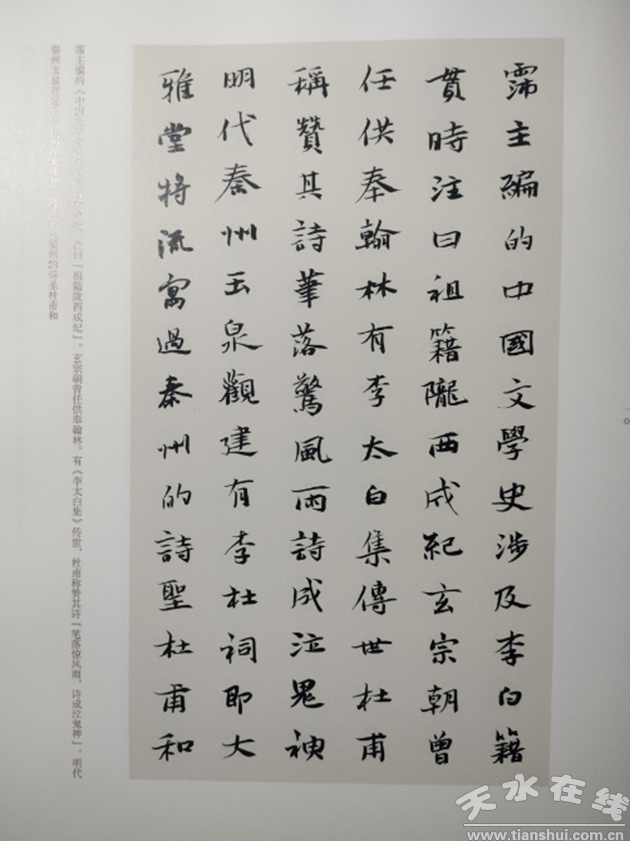 霈主編的中國文學史涉及李白籍
貫時注曰祖籍隴西成紀玄宗朝曾
任供奉翰林有李太白集傳世杜甫
稱贊其詩筆落驚風雨詩成泣鬼神
明代秦州玉泉觀建有李杜祠即大
雅堂將流寓過秦州的詩聖杜甫和
霈主编的《中国 注曰『祖籍陇西成纪』。玄宗朝曾任供奉翰林。有《李太白集》传世，杜甫称赞其诗『笔落惊风雨，诗成泣鬼神』。明代
秦州玉泉观 的诗圣杜甫和
天水在线
www.tianshui.com.cn